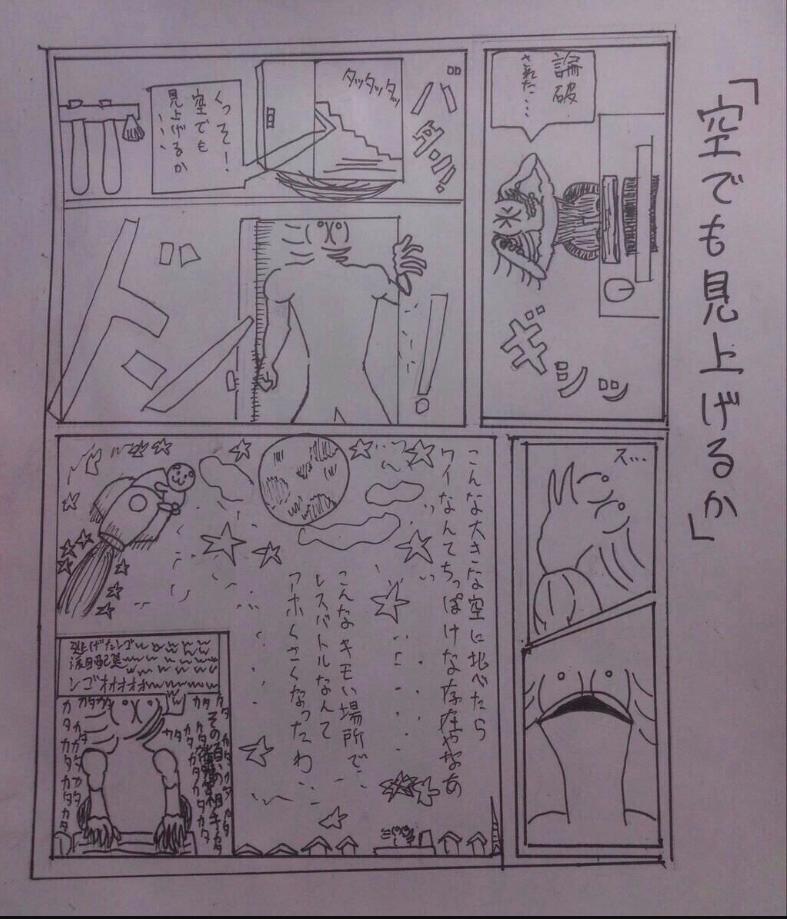 「空でも見上げるか」
論破
された…
ギシッ
タッタッタッ
バタン!!
くっそ!
空でも
見上げるか
・・・
ドン
ス…
こんな大きな空に比べたら
ワイなんてちっぽけな存在やなあ
こんなキモい場所で‥
レスバトルなんて
アホくさくなったわ‥
逃げたンゴwwwwww
ンゴオオオオオwwwwww
その頃の相手
カタカタカタ
カタカタカタカタ